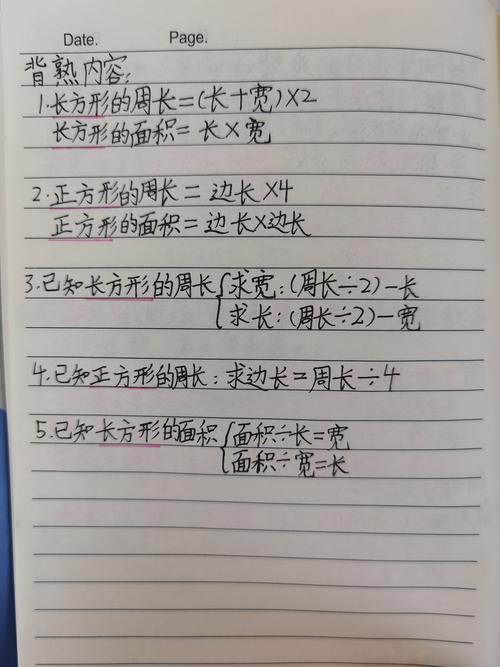 Date. Page.
背熟内容:
1.长方形的周长=(长+宽)×2
长方形的面积=长×宽
2.正方形的周长=边长×4
正方形的面积=边长×边长
3.已知长方形的周长{求宽:(周长÷2)-长
求长:(周长÷2)-宽
4.已知正方形的周长:求边长=周长÷4
5.已知长方形的面积{面积÷长=宽
面积÷宽=长